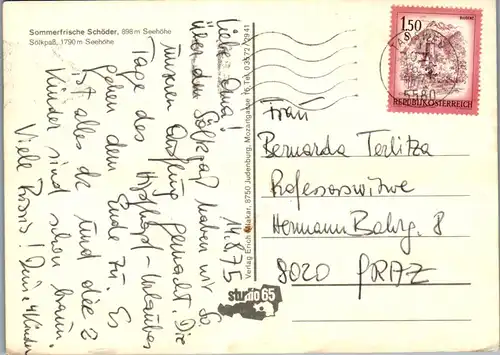 Sommerfrische Schöder, 898 m Seehöhe
Sölkpaß, 1790 m Seehöhe
14.8.75
Liebe Oma!
Über den Sölkpaß haben wir
unseren Ausflug gemacht. Die
Tage des - Urlaubes
gehen dem Ende zu. Es
ist alles ok und die 2
Kinder sind schon braun.
Viele Bussis! Deine 4 Kinder
Verlag Erich Mlakar, 8750 Judenburg, Mozartgasse 16, Tel. 03572/2941
studio 65
BLUDENZ
1.50
REPUBLIK ÖSTERREICH
5580
Frau
Bernarda Terlitza
Professorswitwe
Hermann Bahrg. 8
8020 GRAZ